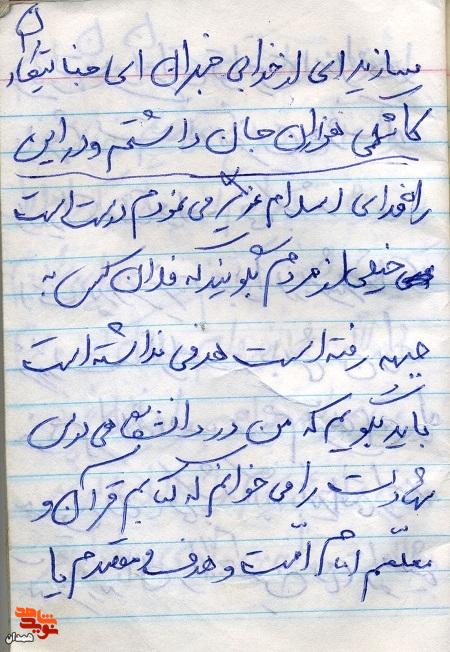 ۵
بسازید ای از خدا بی خبران ای جنایتکار
کاشکی هزاران جان داشتم و در این
راه فدای اسلام عزیز می نمودم درست است
خیلی از مردم بگویند که فلان کس به
جبهه رفته است هدفی نداشته است
باید بگویم که من در دانشگاهی درس
شهادت را می خوانم که کتابم قرآن و
معلّمم امام است و هدف و مقصدم یا
نوید شاهد
همدان